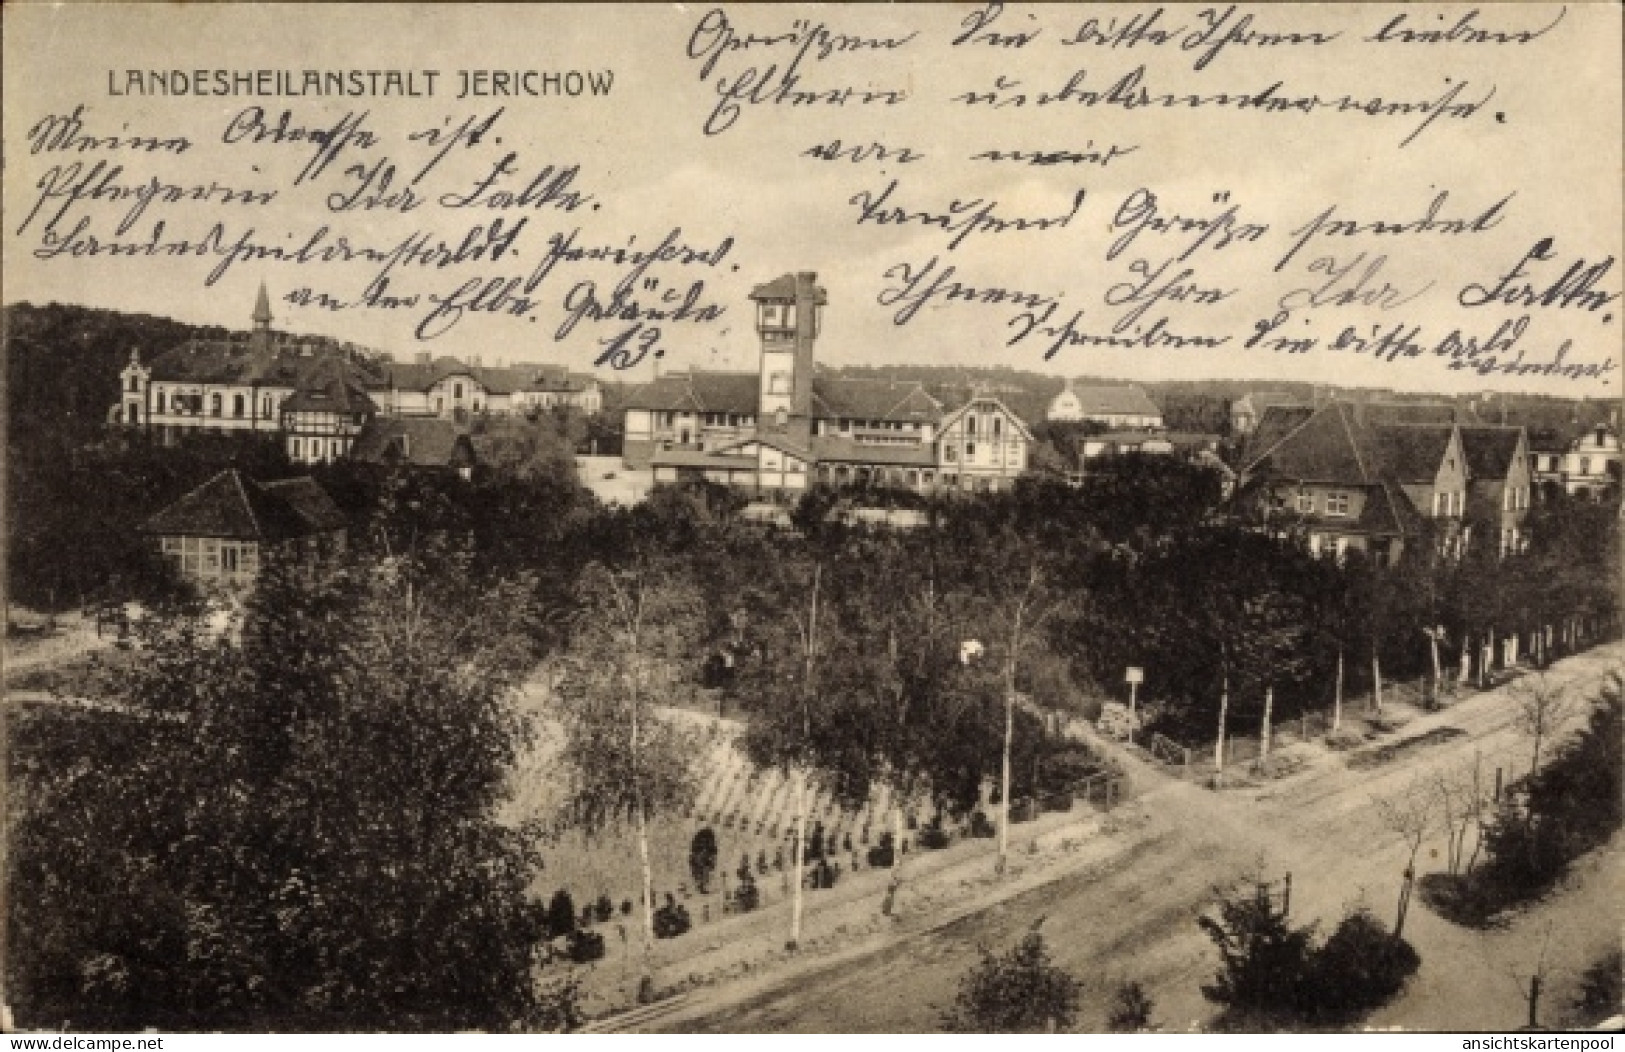 LANDESHEILANSTALT JERICHOW
Meine Adresse ist.
Pflegerin Ida Falke.
Landesheilanstaldt. Jerichow.
an der Elbe. Gebäude
13.
Grüßen Sie bitte Ihren lieben
Eltern unbekannterweise.
von mir
Tausend Grüße sendet
Ihnen, Ihre Ida Falke.
Schreiben Sie bitte bald
wieder.
delcampe.net
ansichtskartenpool